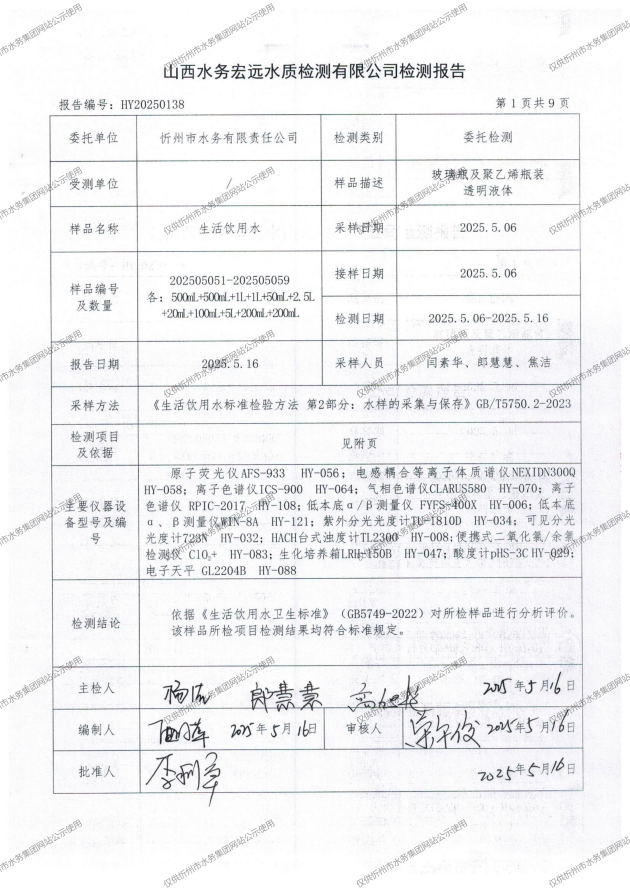 山西水务宏远水质检测有限公司检测报告
报告编号：HY20250138
第 1 页共 9 页
委托单位
忻州市水务有限责任公司
检测类别
委托检测
受测单位
/
样品描述
玻璃瓶及聚乙烯瓶装
透明液体
样品名称
生活饮用水
采样日期
2025.5.06
样品编号
及数量
202505051-202505059
各：500mL+500mL+1L+1L+50mL+2.5L
+20mL+100mL+5L+200mL+200mL
接样日期
2025.5.06
检测日期
2025.5.06-2025.5.16
报告日期
2025.5.16
采样人员
闫素华、郎慧慧、焦洁
采样方法
《生活饮用水标准检验方法 第2部分：水样的采集与保存》GB/T5750.2-2023
检测项目
及依据
见附页
主要仪器设
备型号及编
号
原子荧光仪AFS-933 HY-056；电感耦合等离子体质谱仪NEXIDN300Q
HY-058；离子色谱仪ICS-900 HY-064；气相色谱仪CLARUS580 HY-070；离子
色谱仪 RPIC-2017 HY-108；低本底α/β测量仪 FYFS-400X HY-006；低本底
α、β测量仪WIN-8A HY-121；紫外分光光度计TU-1810D HY-034；可见分光
光度计723N HY-032；HACH台式浊度计TL2300 HY-008；便携式二氧化氯/余氯
检测仪 C10₂+ HY-083；生化培养箱LRH-150B HY-047；酸度计pHS-3C HY-029；
电子天平 GL2204B HY-088
检测结论
依据《生活饮用水卫生标准》（GB5749-2022）对所检样品进行分析评价。
该样品所检项目检测结果均符合标准规定。
主检人
郎慧慧
2025年5月16日
编制人
2025年5月16日
审核人
2025年5月16日
批准人
2025年5月16日
仅供忻州市水务集团网站公示使用